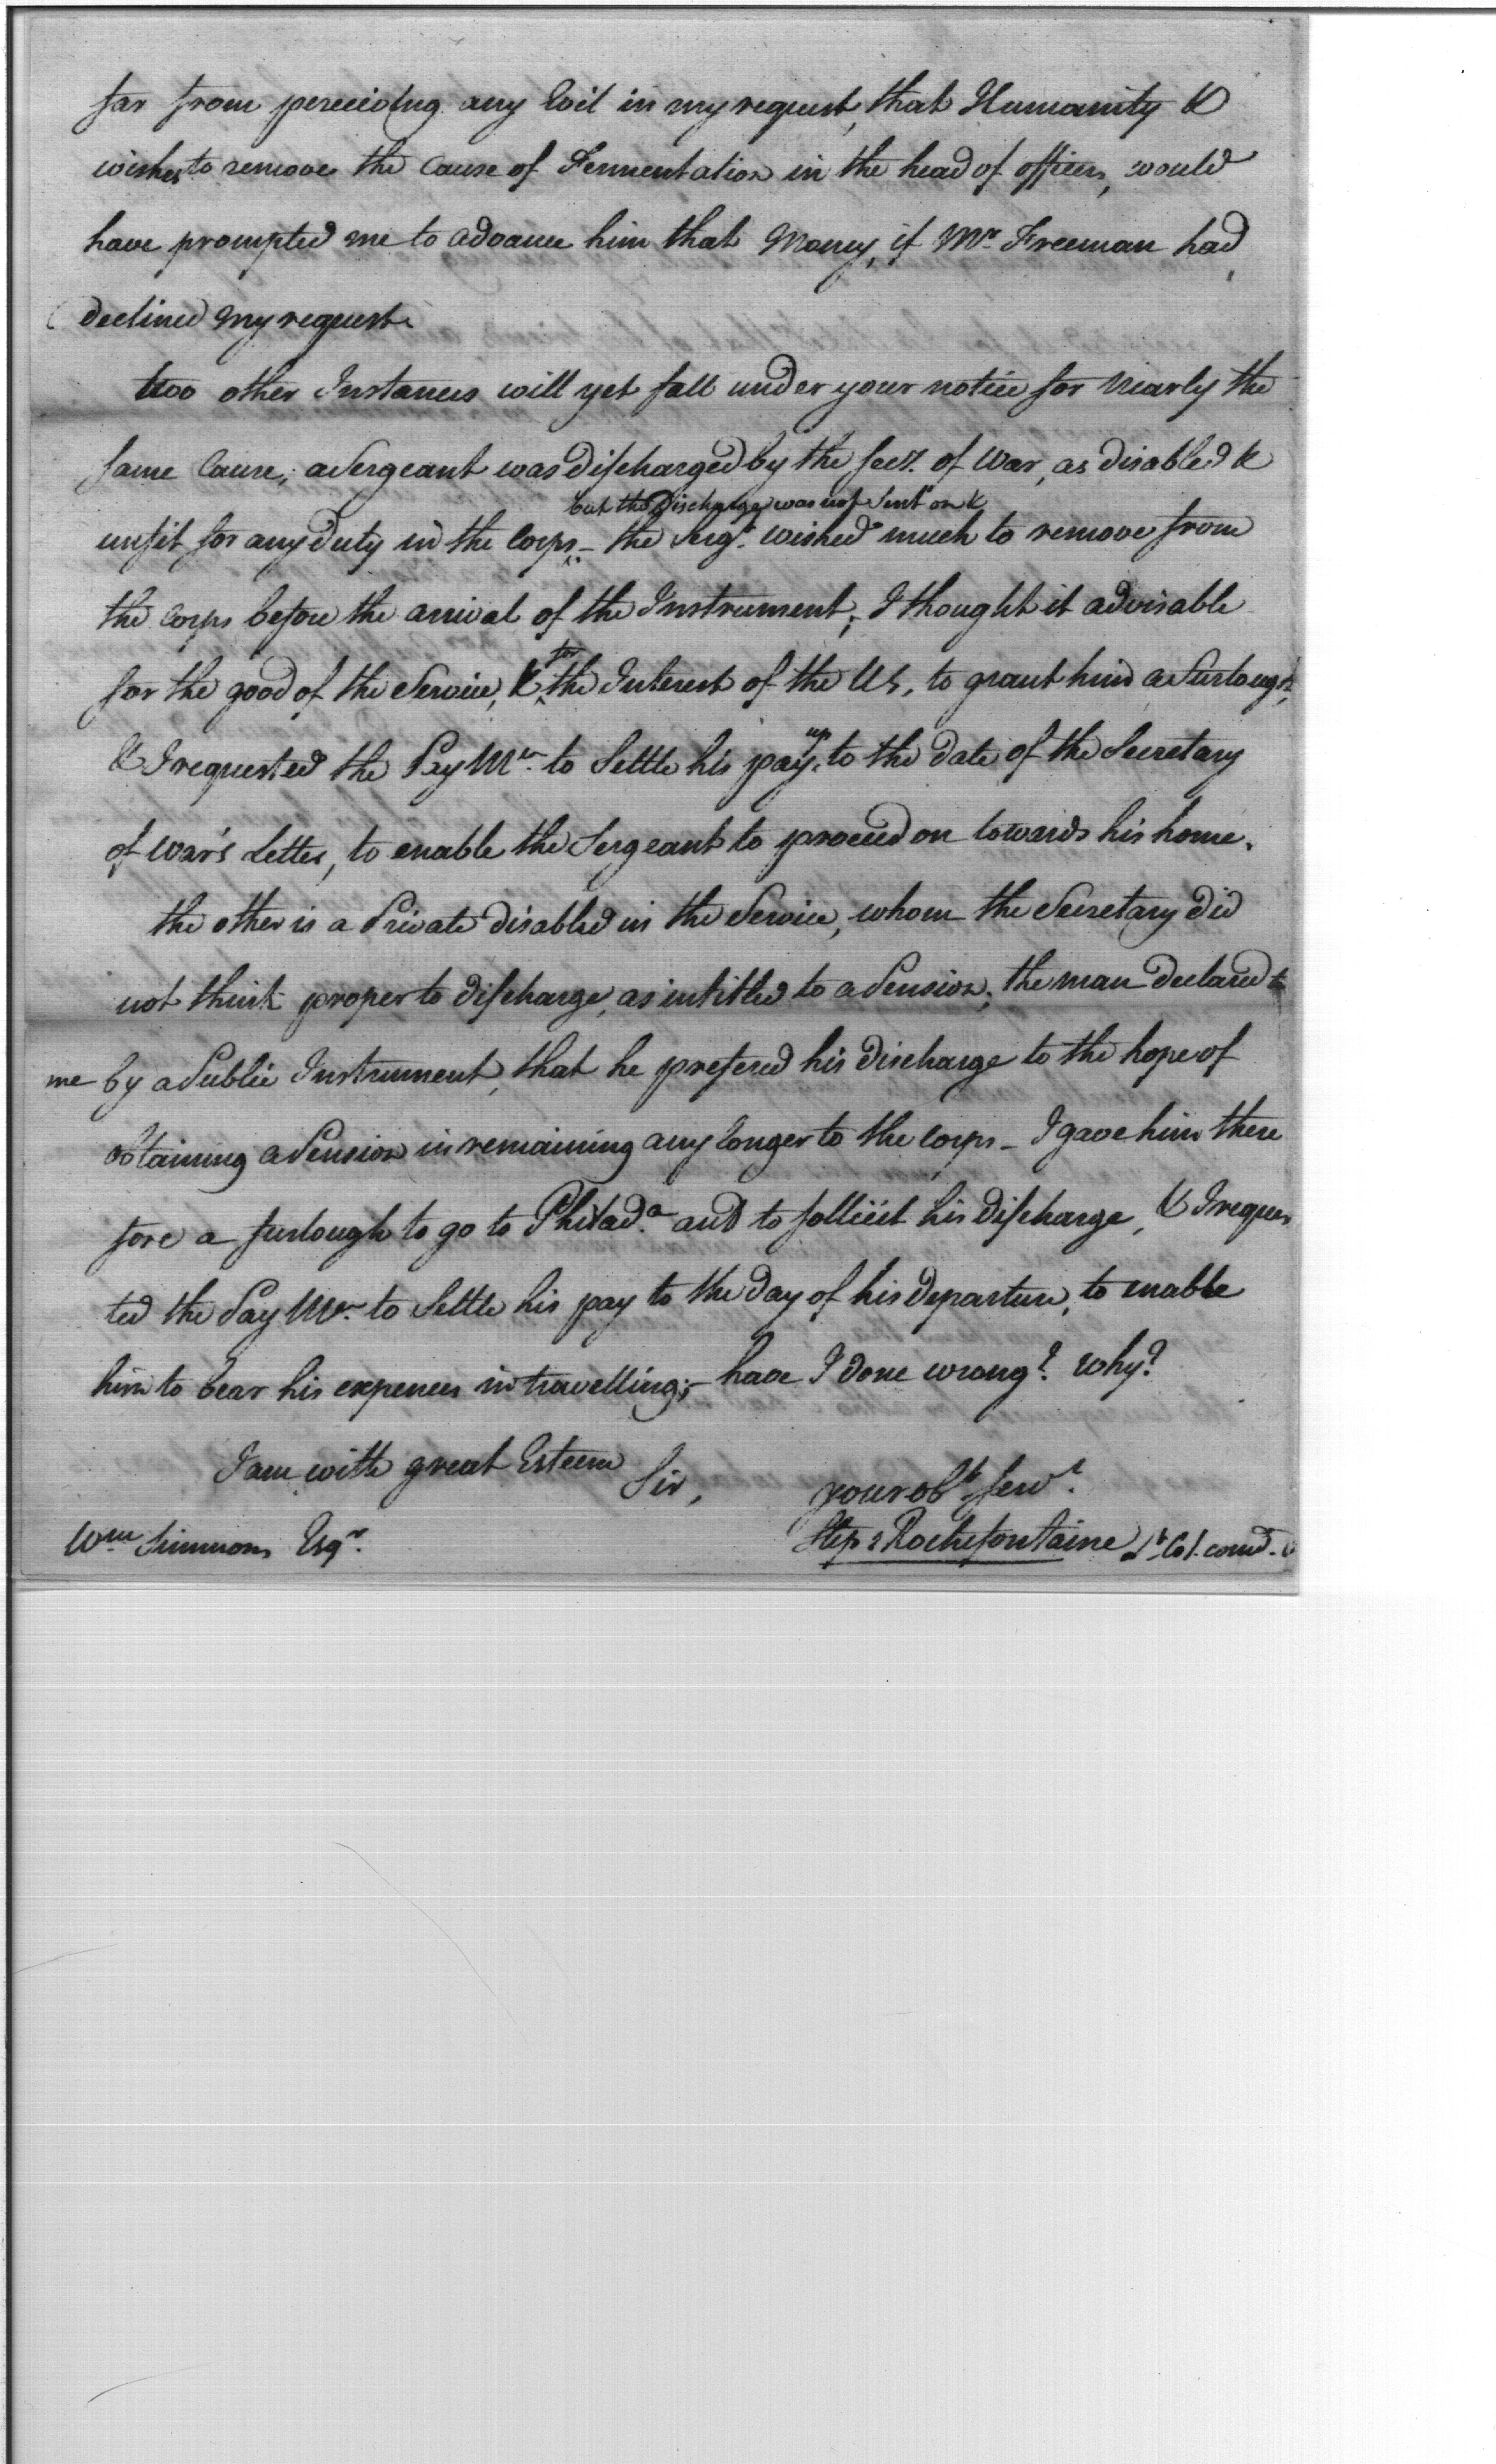 far from perceiving any Evil in my request, that Humanity &
wishes to remove the Cause of Fermentation in the head of officers, would
have prompted me to advance him that Money, if Mr. Freeman had
declined my request.
two other Instances will yet fall under your notice for Nearly the
same Cause; a Sergeant was discharged by the secy. of War, as disabled &
but the Discharge was not Sent on &
unfit for any duty in the Corps – the Sergt. wished much to remove from
the Corps before the arrival of the Instrument; I thought it advisable
for
for the good of the Service, & the Interest of the US, to grant him a furlough,
up
& I requested the Pay Mr. to Settle his pay to the date of the Secretary
of War's Letter, to enable the Sergeant to proceed on towards his home.
the other is a Private disabled in the Service, whom the Secretary did
not think proper to discharge, as intitled to a Pension; the man declared to
me by a Public Instrument, that he prefered his discharge to the hope of
obtaining a Pension in remaining any longer to the Corps – I gave him there
fore a furlough to go to Philada. and to sollicit his discharge, & I reques
ted the Pay Mr. to Settle his pay to the day of his departure, to enable
him to bear his expences in travelling; – have I done wrong? why?
I am with great Esteem
Sir,
your obt. servt.
Wm Simmons Esqr.
Stepn Rochefontaine Lt. Col. comd.